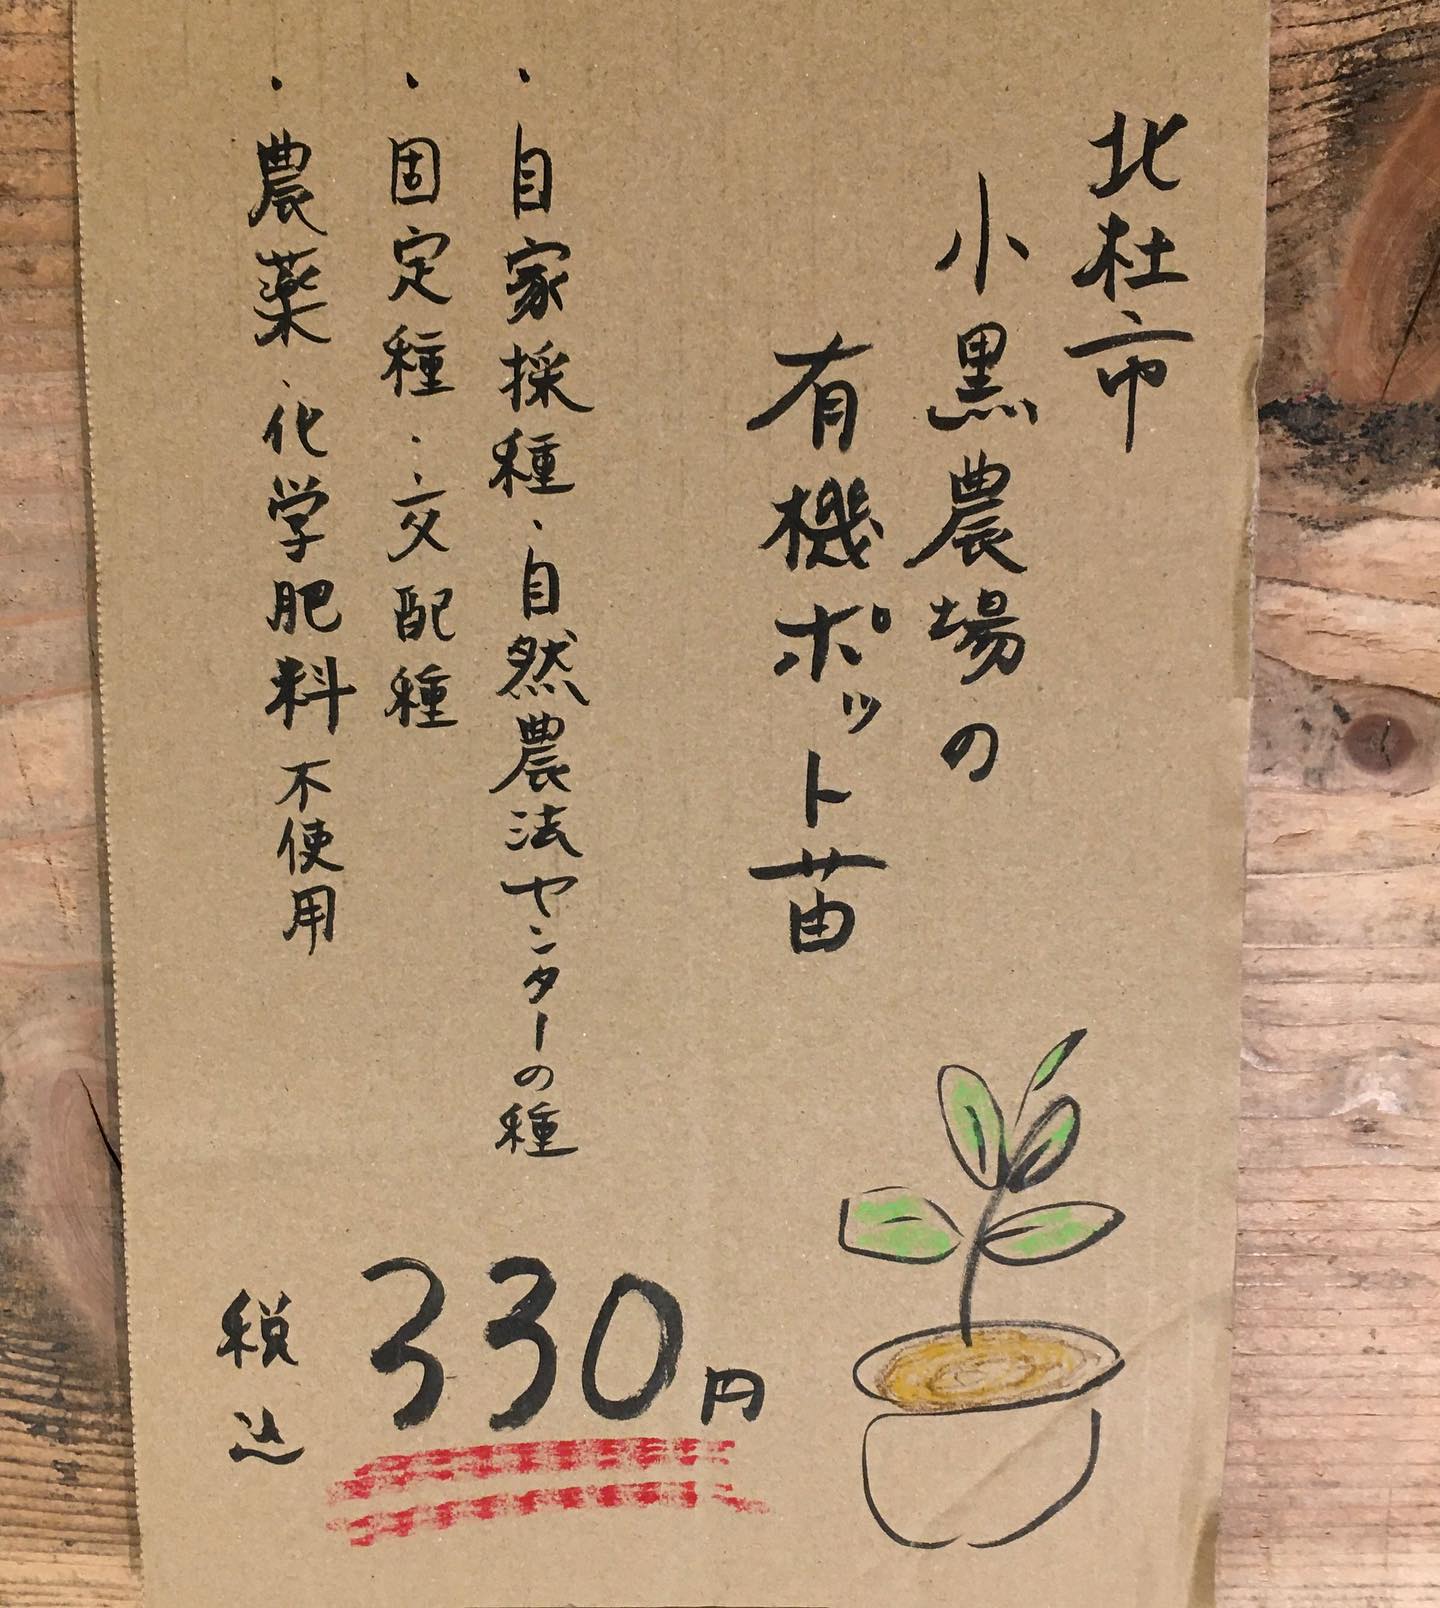 北杜市
小黒農場の
有機ポット苗
・自家採種・自然農法センターの種
・固定種・交配種
・農薬・化学肥料不使用
330円
税込